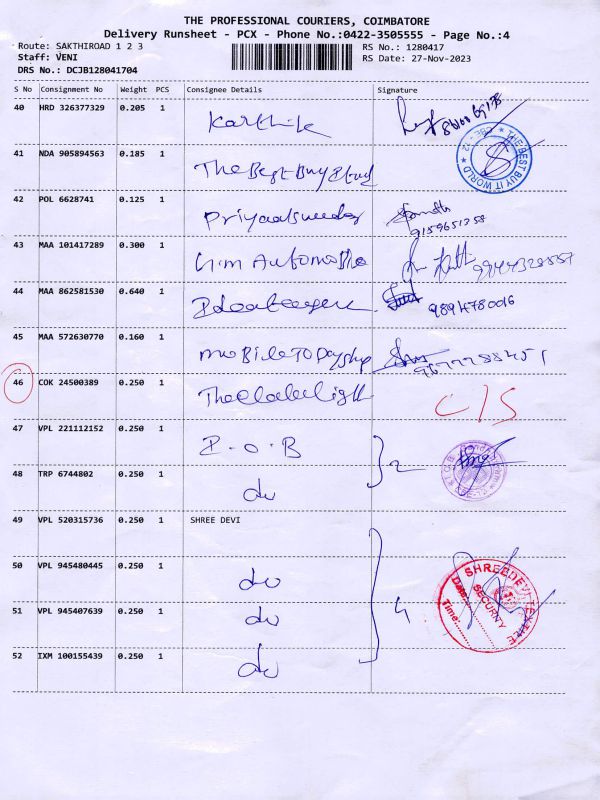 THE PROFESSIONAL COURIERS, COIMBATORE
Delivery Runsheet - PCX - Phone No.:0422-3505555 - Page No.:4
Route: SAKTHIROAD 1 2 3 RS No.: 1280417
Staff: VENI RS Date: 27-Nov-2023
DRS No.: DCJB128041704
S No Consignment No Weight PCS Consignee Details Signature
40 HRD 326377329 0.205 1 Karthik
41 NDA 905894563 0.185 1 The Best Buy
THE BEST BUY IT WORLD
42 POL 6628741 0.125 1
9159651258
43 MAA 101417289 0.300 1 Automobile
44 MAA 862581530 0.640 1 9894780016
45 MAA 572630770 0.160 1 mobile TO Day
46 COK 24500389 0.250 1 The C/S
47 VPL 221112152 0.250 1 I.O.B
2
48 TRP 6744802 0.250 1 do
49 VPL 520315736 0.250 1 SHREE DEVI
50 VPL 945480445 0.250 1 do
SHREE DEVI TEXTILE
SECURITY
Date:
Time:
51 VPL 945407639 0.250 1 do 4
52 IXM 100155439 0.250 1 do